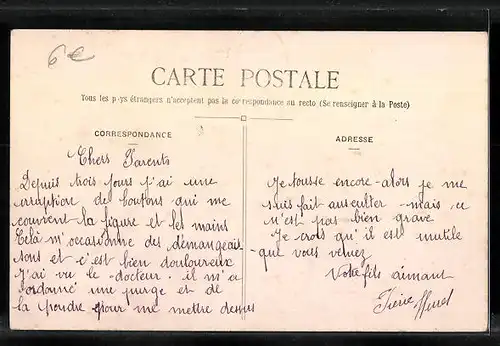 6€
CARTE POSTALE
Tous les pays étrangers n'acceptent pas la correspondance au recto (Se renseigner à la Poste)
CORRESPONDANCE
Chers Parents
Depuis trois jours j'ai une
irruption de boutons qui me
couvrent la figure et les mains
Celà m'occasionne des démangeais-
sons et c'est bien douloureux
J'ai vu le docteur. il m'a
ordonné une purge et de
la poudre pour me mettre dessus
ADRESSE
Je tousse encore - alors je me
suis fait ausculter - mais, ce
n'est pas bien grave
Je crois qu'il est inutile
que vous veniez
Votre fils aimant